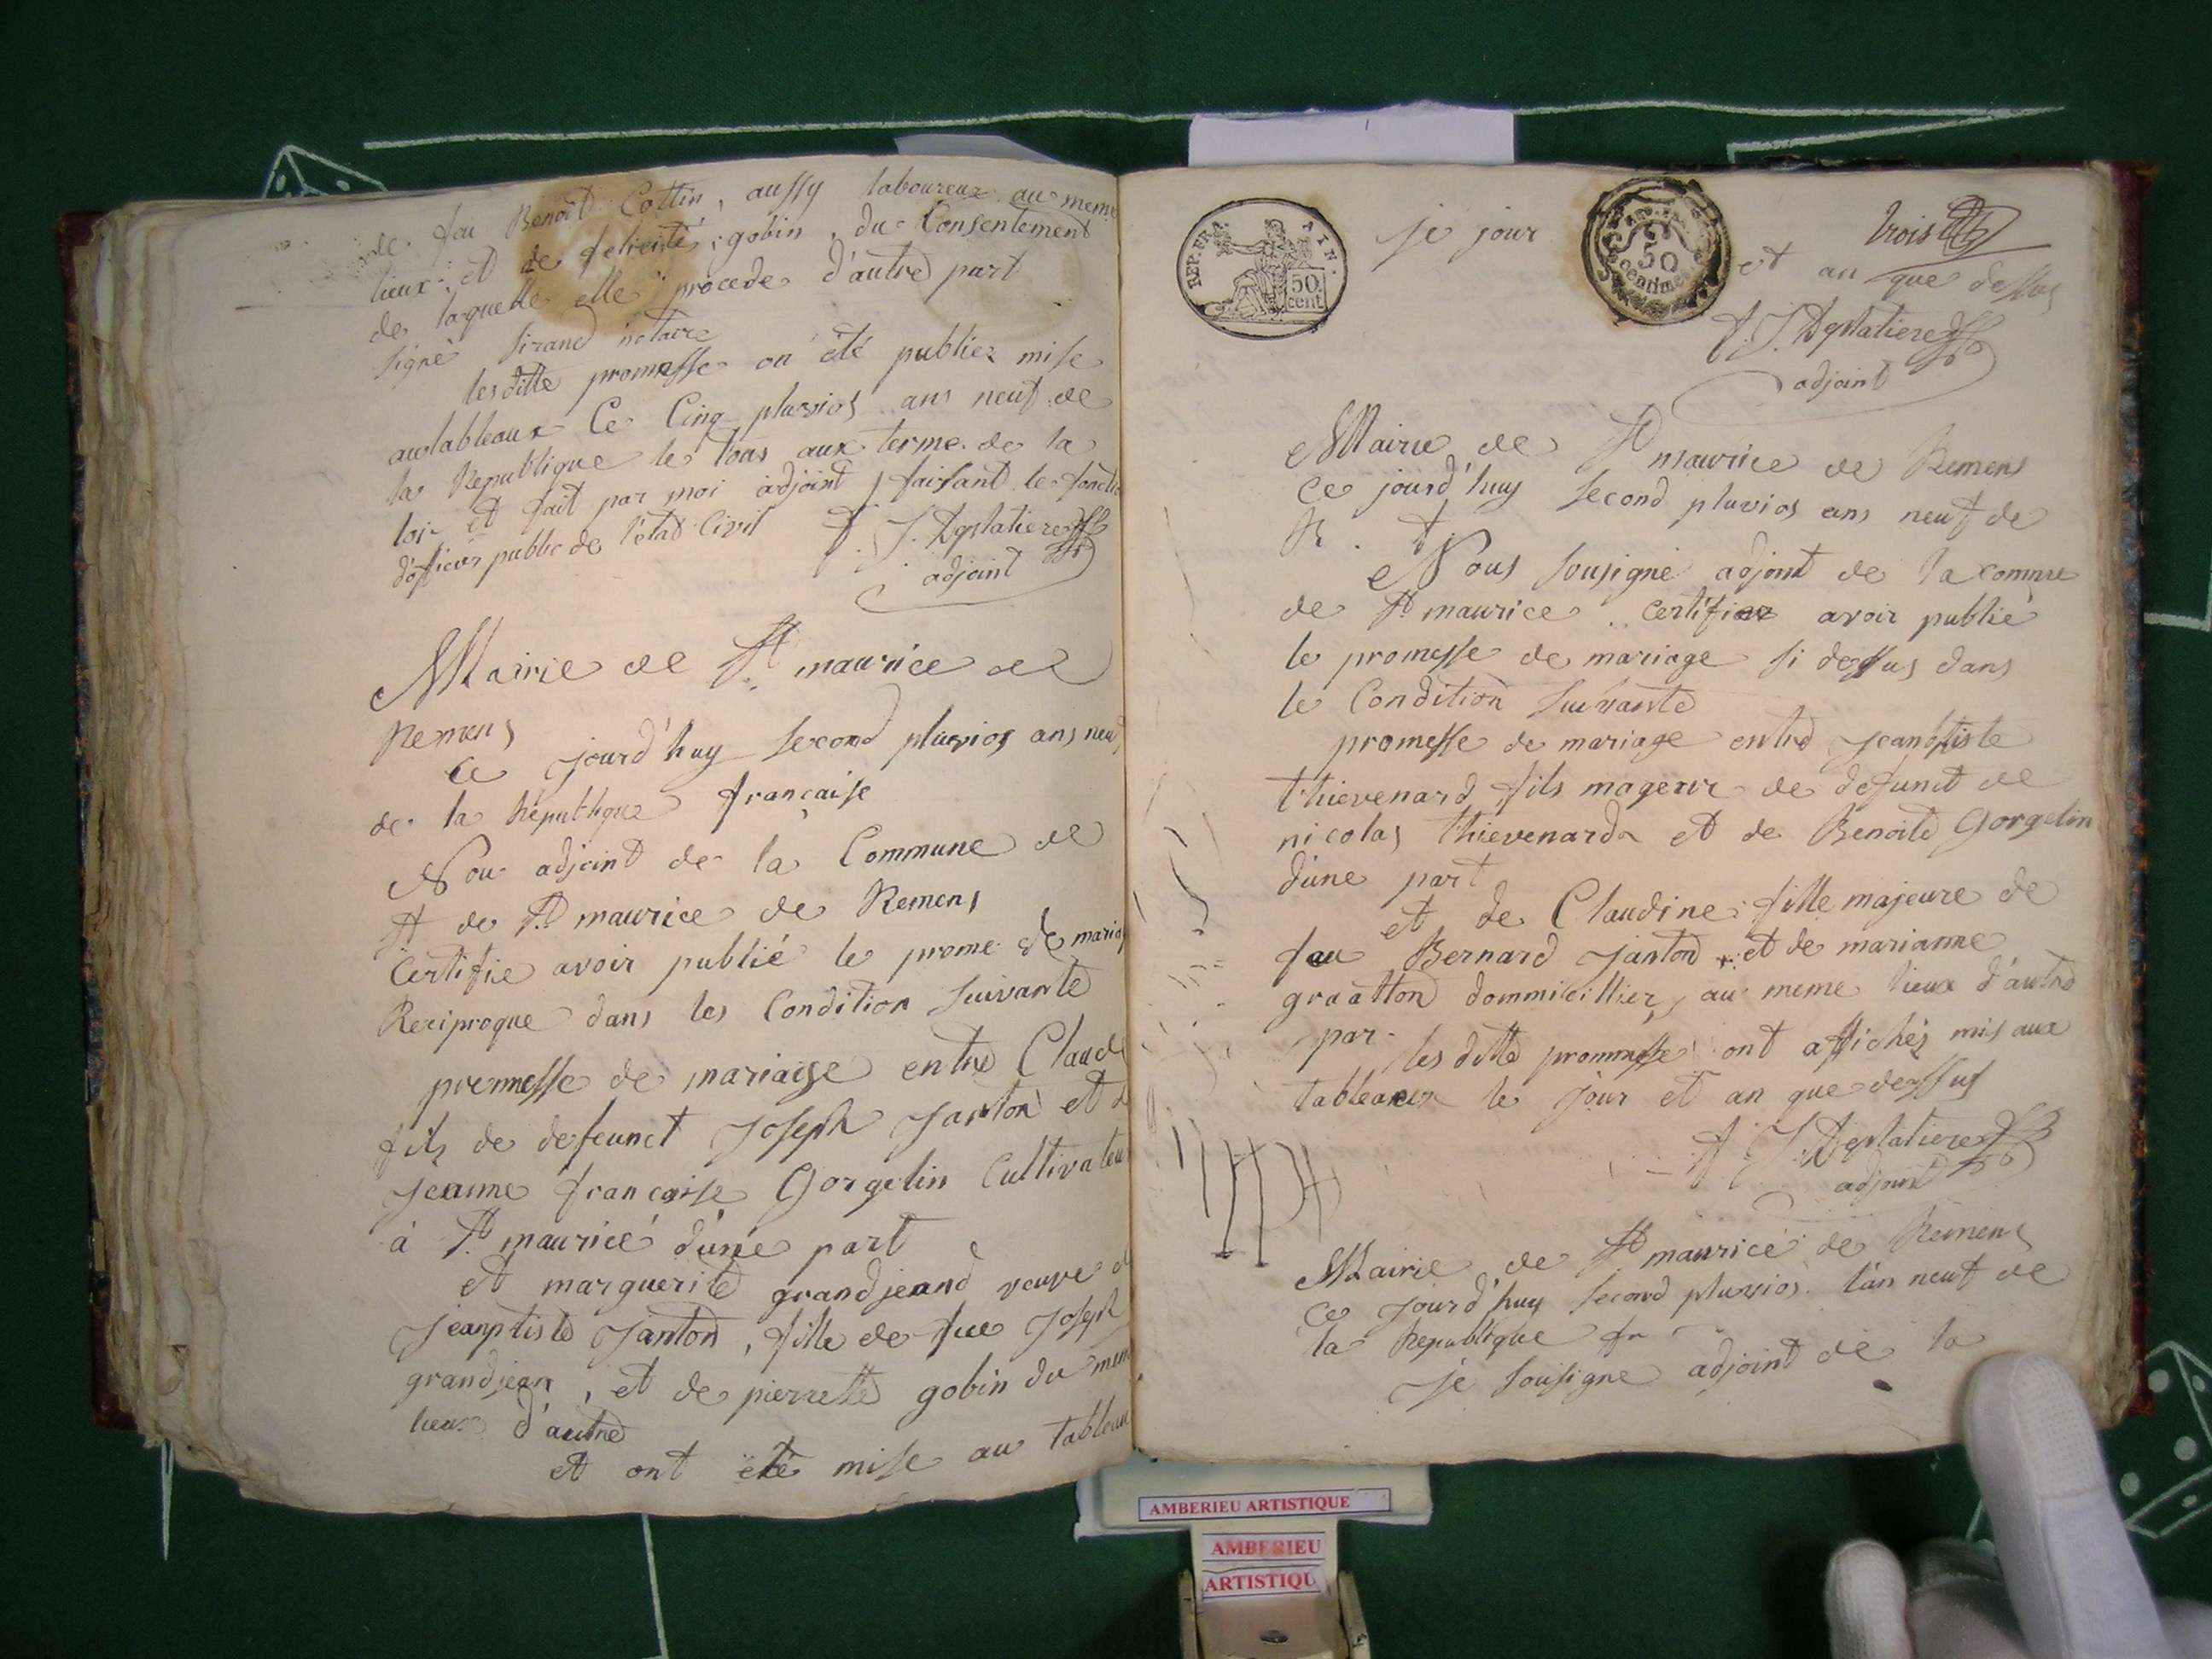 de feu Benoit Cottin, aussy laboureur au meme
lieux et de felicité gobin, du Consentement
de laquelle elle procede d'autre part
signé sirand notaire
lesditte promesse on été publiez mise
autableaux Ce Cinq pluvios ans neuf de
la Republique le tous aux terme de la
loi et fait par moi adjoint faisant le foncti
d'officier public de l'état Civil
adjoint
Mairie de St maurice de
Remens
Ce jourd'huy second pluvios ans neuf
de la Republique française
Nou adjoint de la Commune de
St de St maurice de Remens
Certifie avoir publié le prome de mariag
Reciproque dans les Condition suivante
promesse de mariage entre Claude
fils de defeunct Joseph Janton et d
Jeanne francoise Gorgelin Cultivateur
à St maurice d'une part
et marguerite grandjeand veuve d
Jeanptiste Janton, fille de feu Joseph
grandjean, et de pierrette gobin du mem
lieux d'autre
et ont été mise au tableau
REP. FRA. AIN.
50 cent
je jour
50
centimes
trois
et an que dessus
adjoint
Mairie de St maurice de Remens
Ce jourd'huy second pluvios ans neuf de
R. f.
Nous sousigné adjoint de la comune
de St maurice certifier avoir publié
le promesse de mariage si dessus dans
le Condition suivante
promesse de mariage entre Jeanbtiste
thievenard fils mageur de defunct de
nicolas thievenard et de Benoite Gorgelin
d'une part
et de Claudine fille majeure de
feu Bernard Janton et de marianne
graatton dommicillier, au meme lieux d'autre
par.
les ditte prommesse ont affichéz mis aux
tableaux le jour et an que dessus
adjoint
Mairie de St maurice de Remens
Ce Jourd'huy second pluvios l'an neuf de
la Republique fr
Je sousigne adjoint de la
AMBERIEU ARTISTIQUE
AMBERIEU
ARTISTIQU